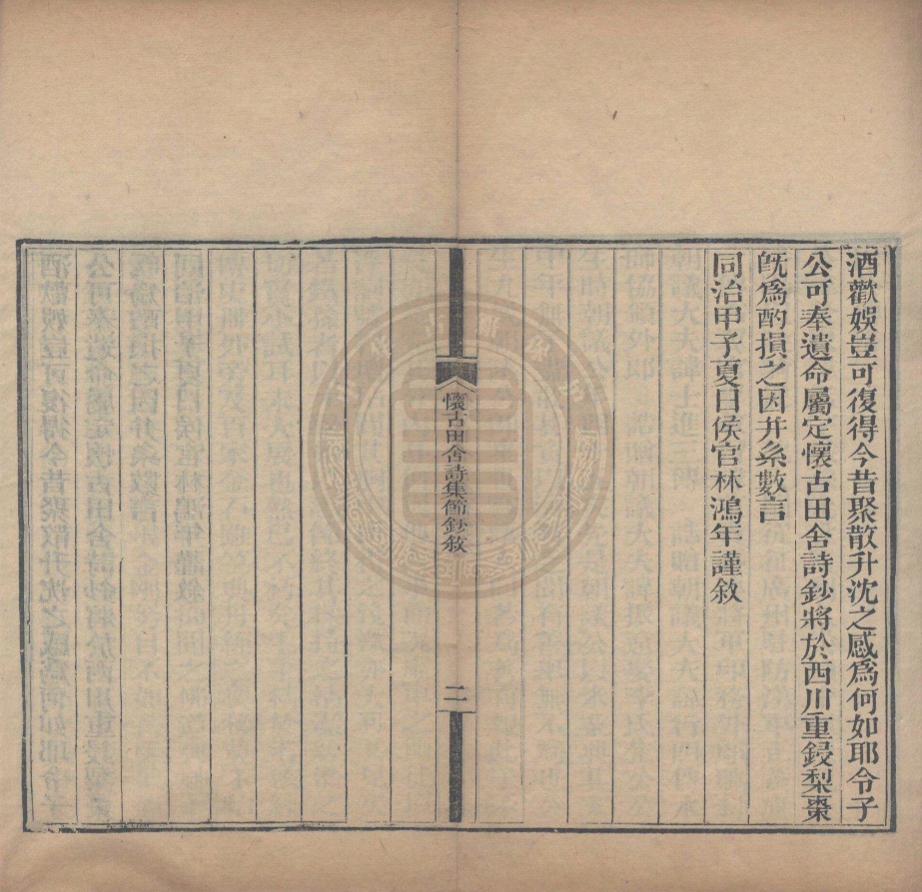 酒歡娛豈可復得今昔聚散升沈之感爲何如耶令子
公可奉遺命屬定懷古田舍詩鈔將於西川重鋟梨棗
旣爲酌損之因幷系數言
同治甲子夏日侯官林鴻年謹敘
懷古田舍詩集節鈔敘
二